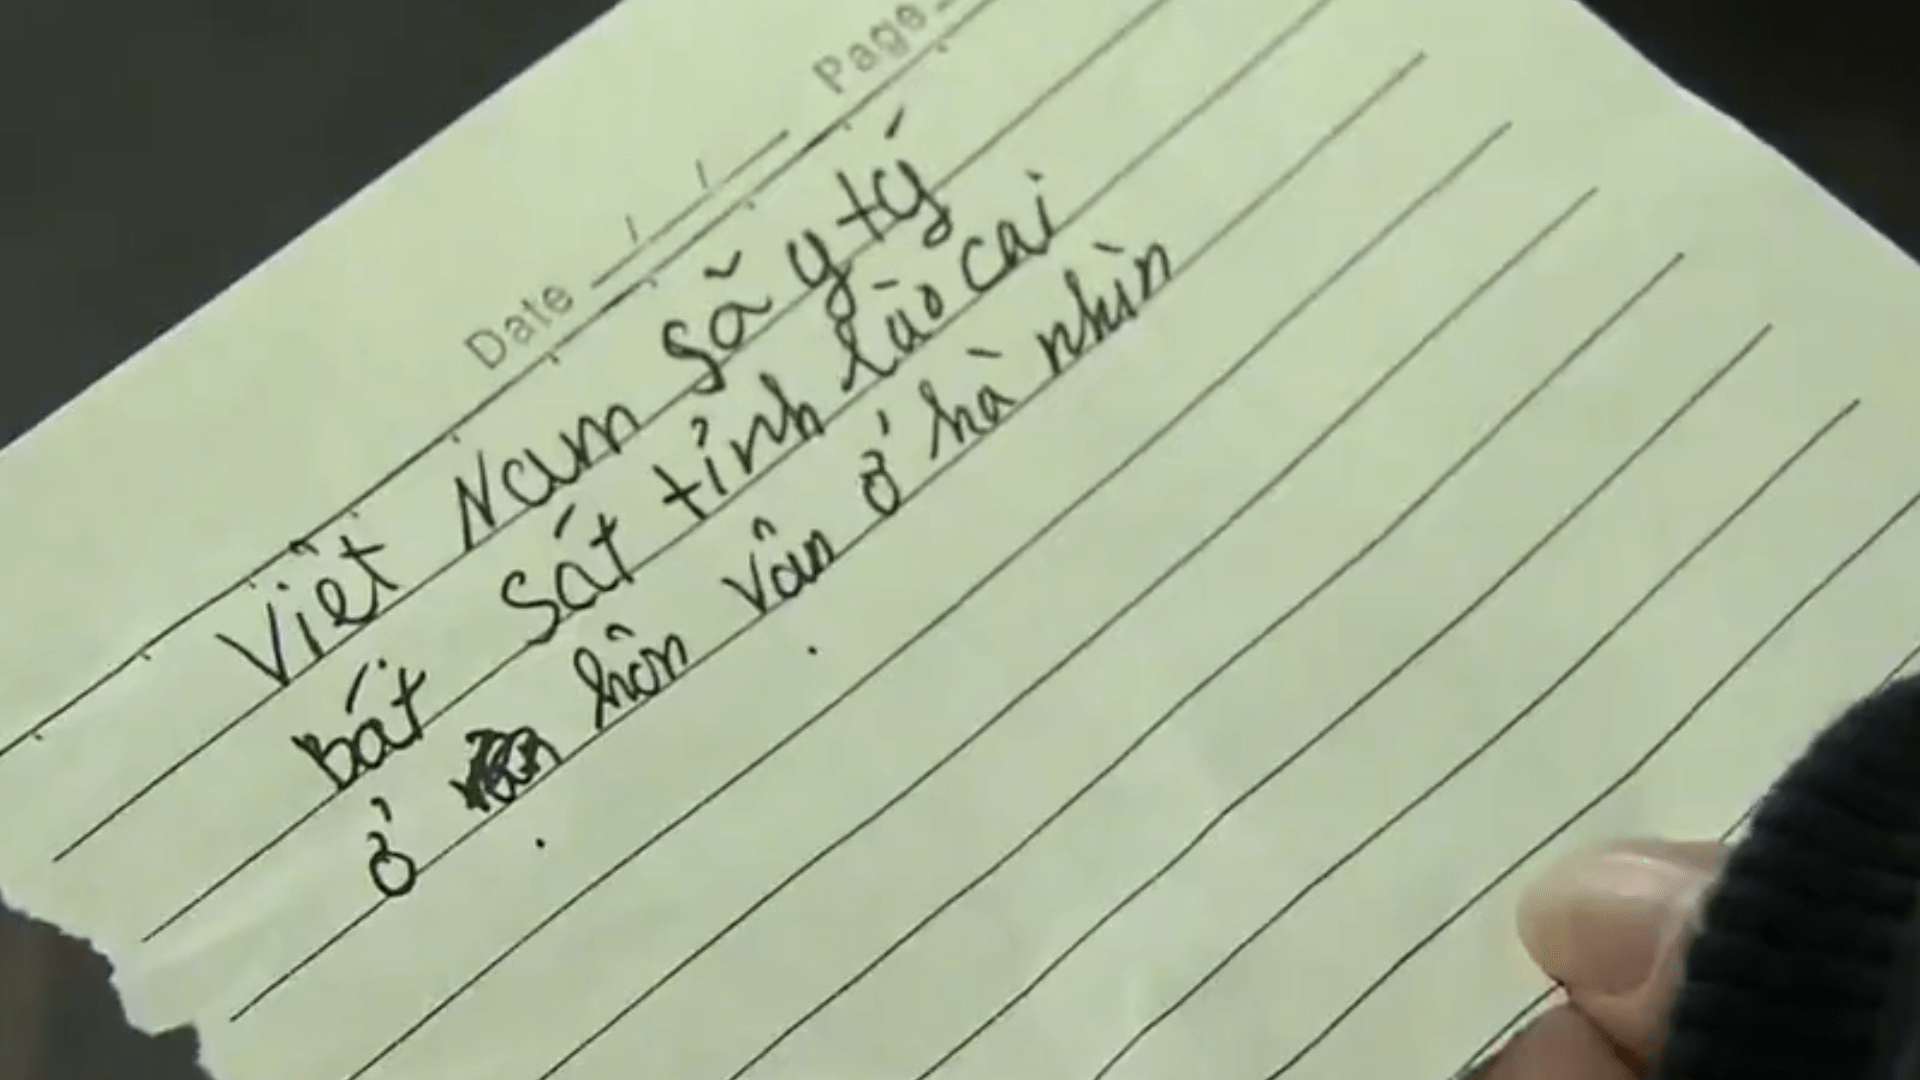 Page
Date / /
Việt Nam Sã y tý
bát Sát tỉnh lào cai
ở hôn vân ở hà nhìn